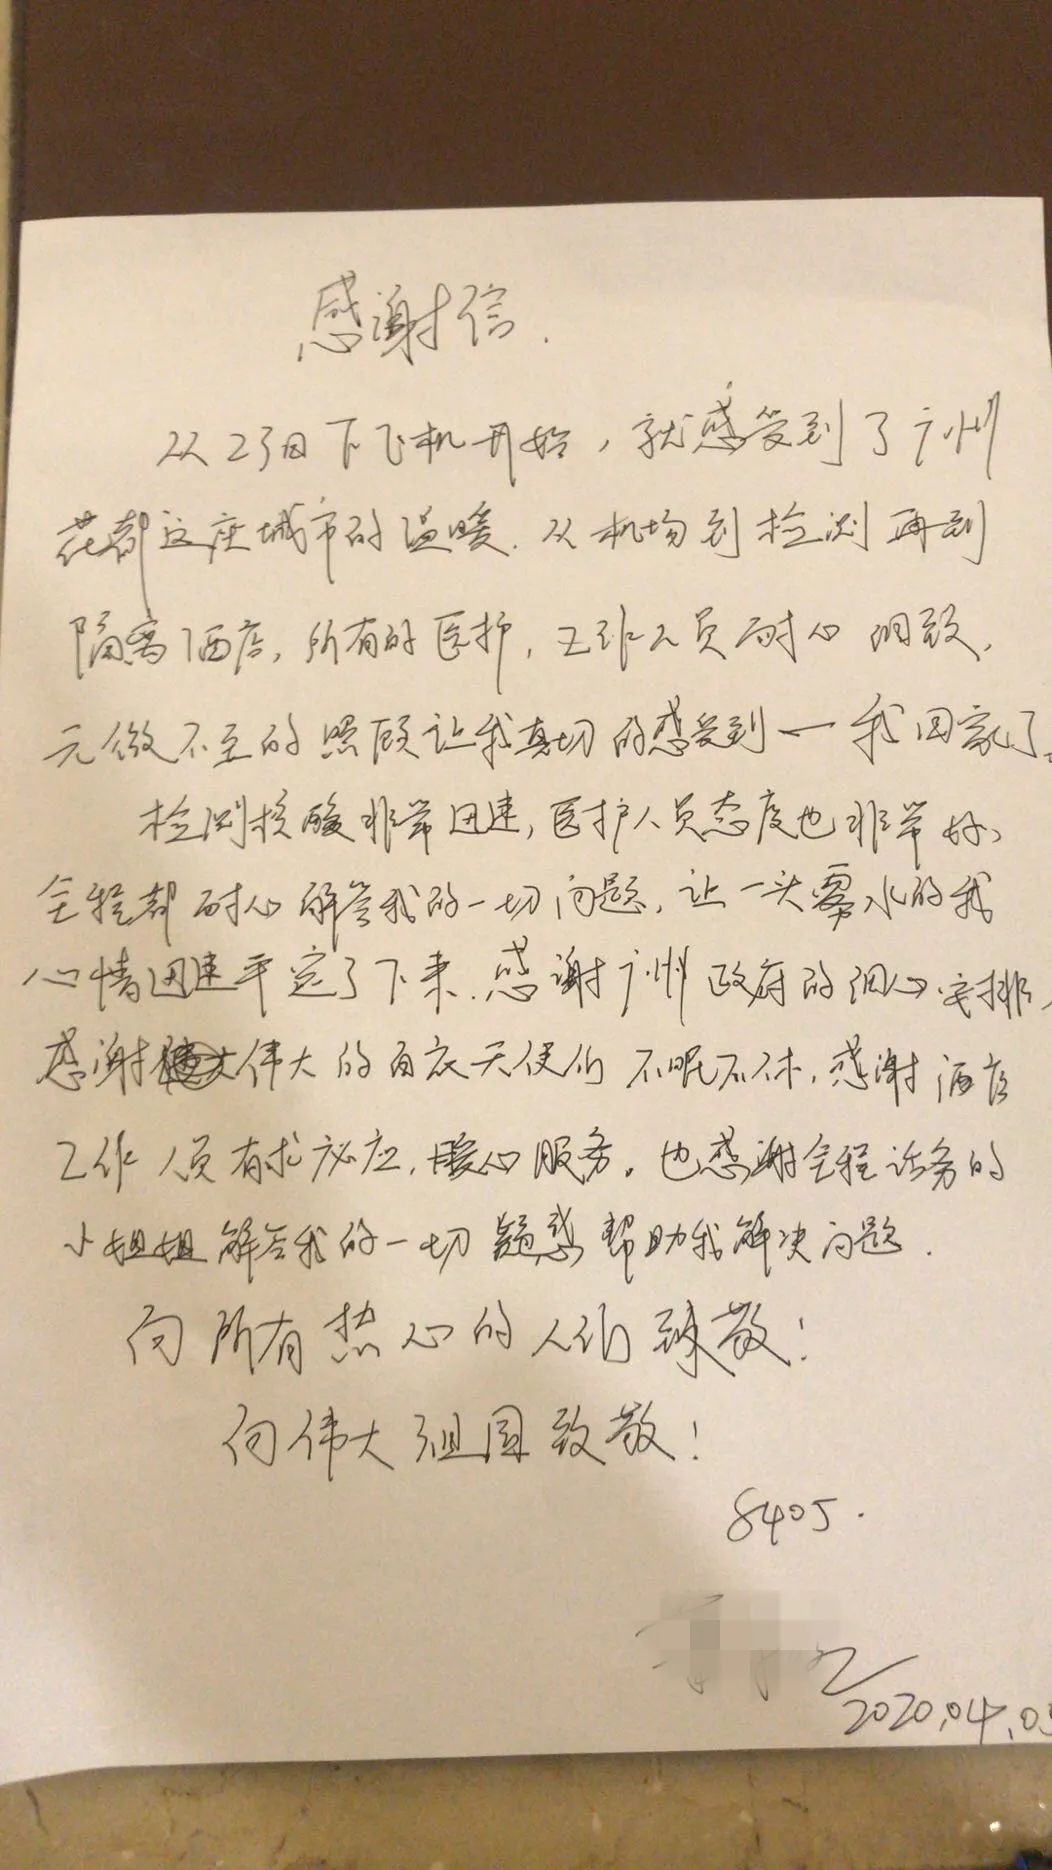 感谢信.
从23日下飞机开始,就感受到了广州
花都这座城市的温暖.从机场到检测再到
隔离酒店,所有的医护,工作人员耐心细致,
无微不至的照顾让我真切的感受到一我回家了.
检测核酸非常迅速,医护人员态度也非常好、
全程都耐心解答我的一切问题,让一头雾水的我
心情迅速平定了下来.感谢广州政府的细心安排,
感谢伟大的白衣天使们不眠不休,感谢酒店
工作人员有求必应,暖心服务。也感谢全程话务的
小姐姐解答我的一切疑惑帮助我解决问题.
向所有热心的人们致敬!
向伟大祖国致敬!
8405.
2020.04.03